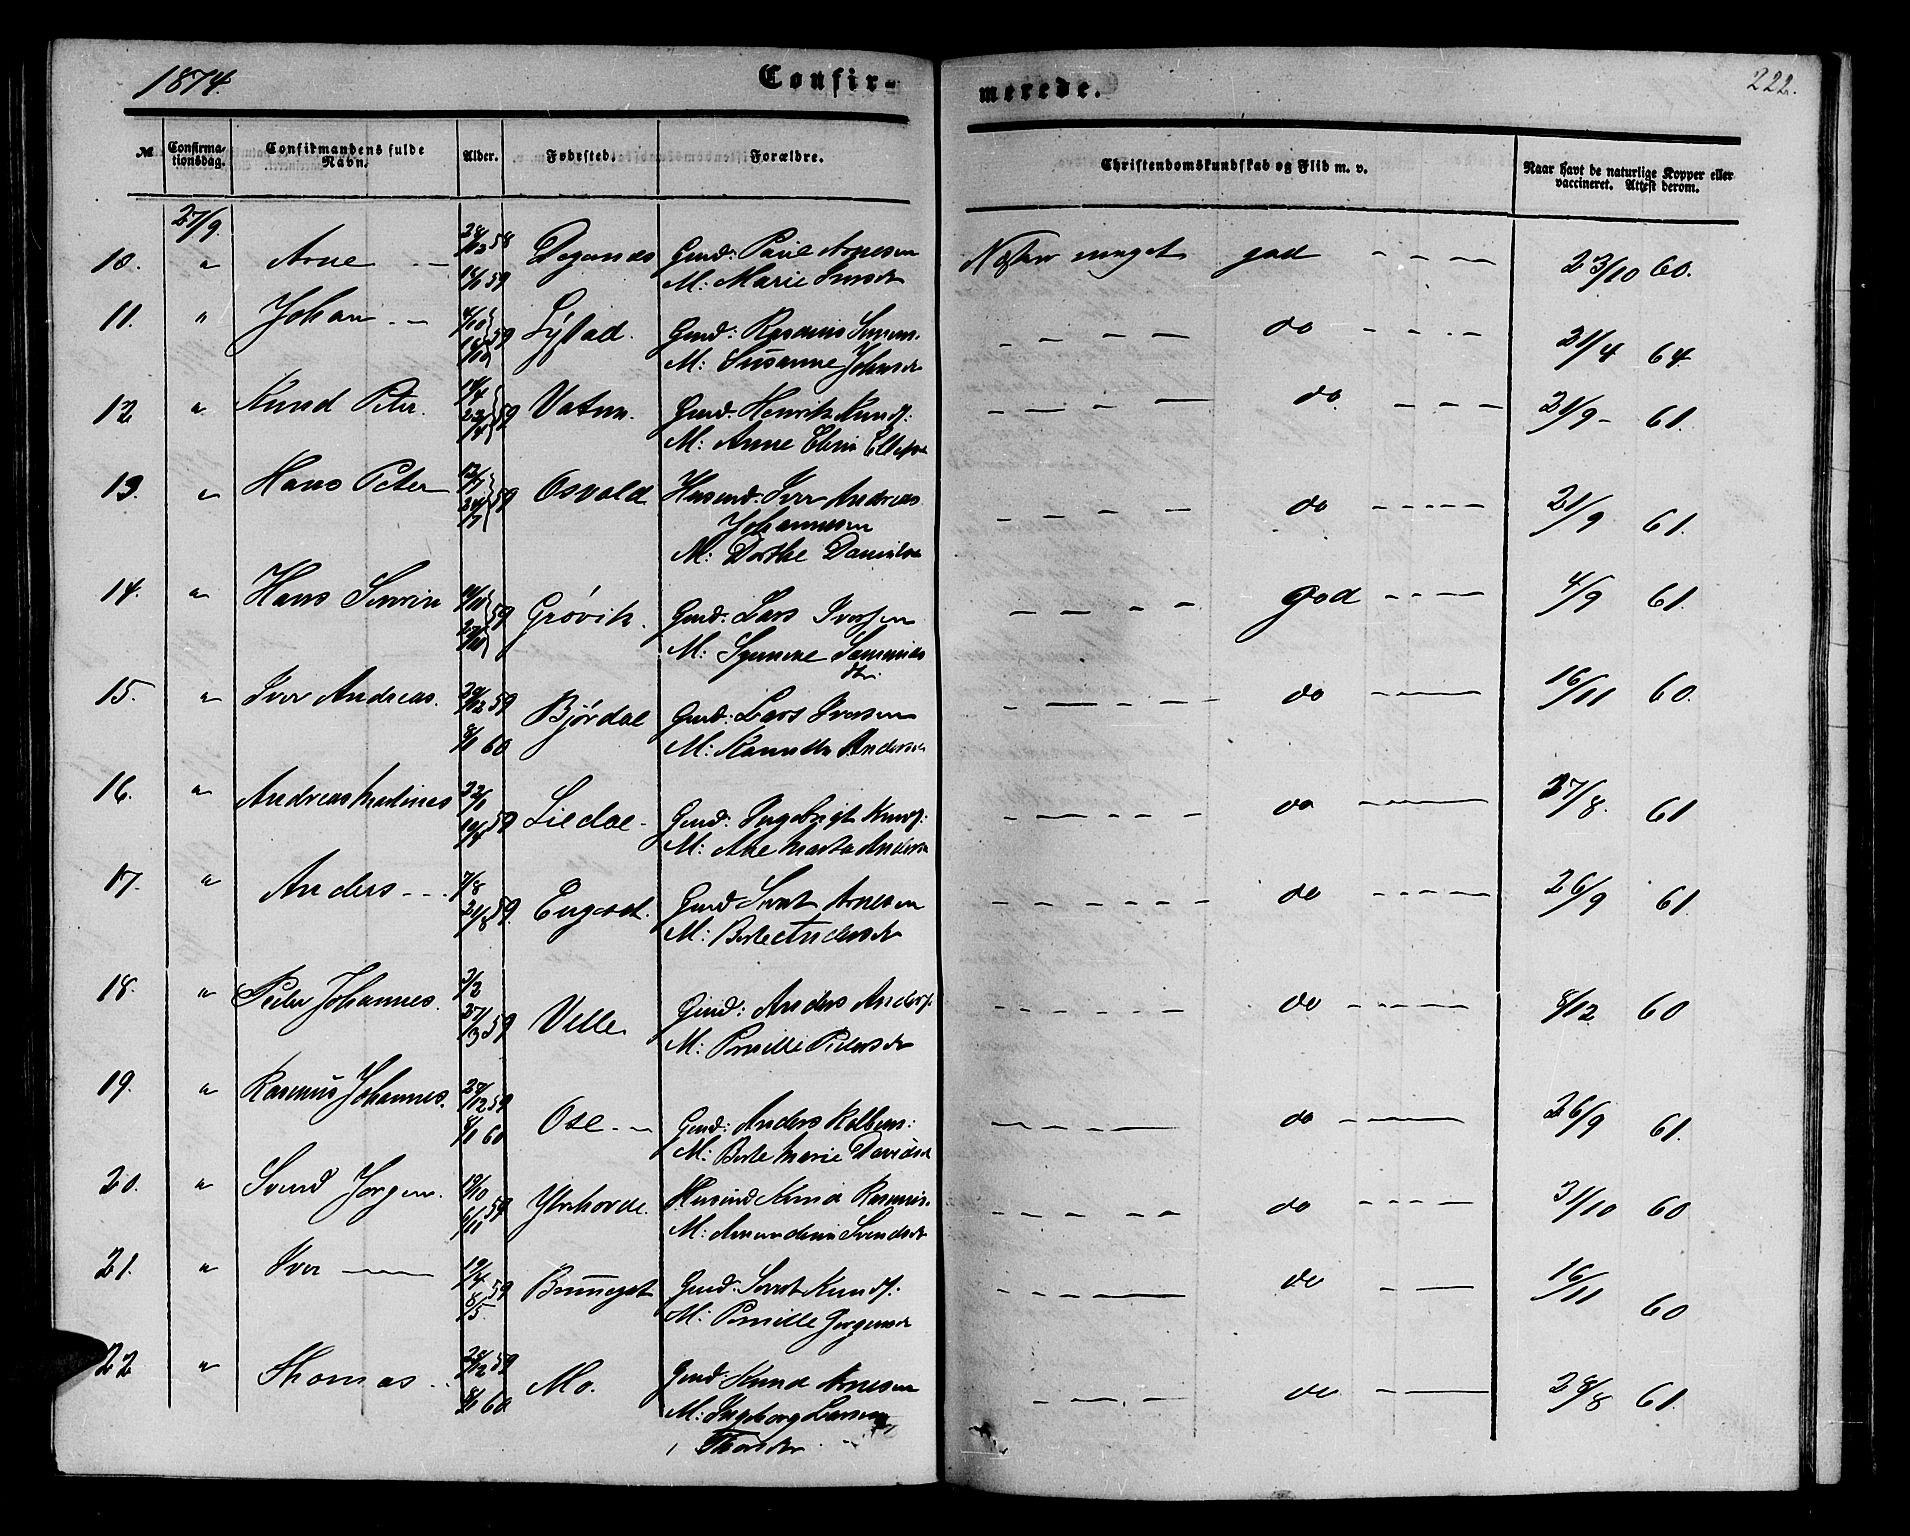 1874.
Confir-
merede.
222.
№
Confirma-
tionsdag.
Confirmandens fulde
Navn.
Alder.
Fødested.
Forældre.
Christendomskundskab og Flid m. v.
Naar havt de naturlige Kopper eller
vaccineret. Attest derom.
27/9.
10. " Arne 28/12 58 Gmd: Paul Arnesen Næsten meget god 23/10 60.
14/1 59 M: Marie
11. " Johan 4/10 59 Gmd: Rasmus do 21/4 64.
M: Susanne Johansdr
12 " Knud Peter. 14/4 59 Vatne. Gmd: Henrik Knuds: do 21/9 - 61.
M: Anne
13. " Hans Peter 59 Osvold Husmd: Iver Andreas do 21/9 61.
Johannesen
M: Dorthe
14. " Hans Severin 59 Grøvik. Gmd: Lars Iversen god 4/9 61.
M: Synneve
dtr.
15. " Iver Andreas. 29/12 59 Bjørdal Gmd: Lars Iversen do 16/11 60.
8/1 60 M: Andersdr
16. " Andreas Martinus 22/1 59 Liedal. Gmd: Ingebrigt Knuds: do 27/8. 61.
M: Ane Marta Andersdr
17. " Anders 7/8 Engeset. Gmd: Sivert Arnesen do 26/9 61.
21/8 59. M: Berte Andersdr
18. " Peder Johannes. 3/2 Velle. Gmd: Anders Anders: do 8/12 60
27/3 59 M: Pernille Pedersdr
19. " Rasmus Johannes. 28/12 59 Ose. Gmd: Anders Kolbens: do 26/9 61.
8/1 60 M: Berte Marie Davidsdr
20. " Svend Jørgen. 19/10 Ytrehovde. Husmd Knud Rasmus. do 31/10 60
6/11 59 M: Svendsdr
21. " Iver 19/4 59 Gmd: Sivert Knuds: do 16/11
8/5. M: Pernille Jørgensdr 60
22 " Thomas 28/12 59 Mo. Gmd: Knud Arnesen do 28/8 61.
8/1 60. M: Ingeborg Larsine